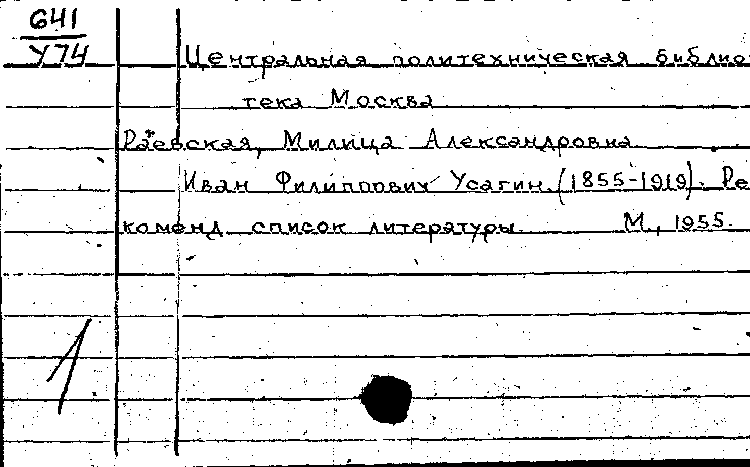 641
У74
Центральная политехническая библио
тека Москва
Раевская, Милица Александровна
Иван Филиппович Усагин (1855-1919). Ре
команд список литературы М., 1955.